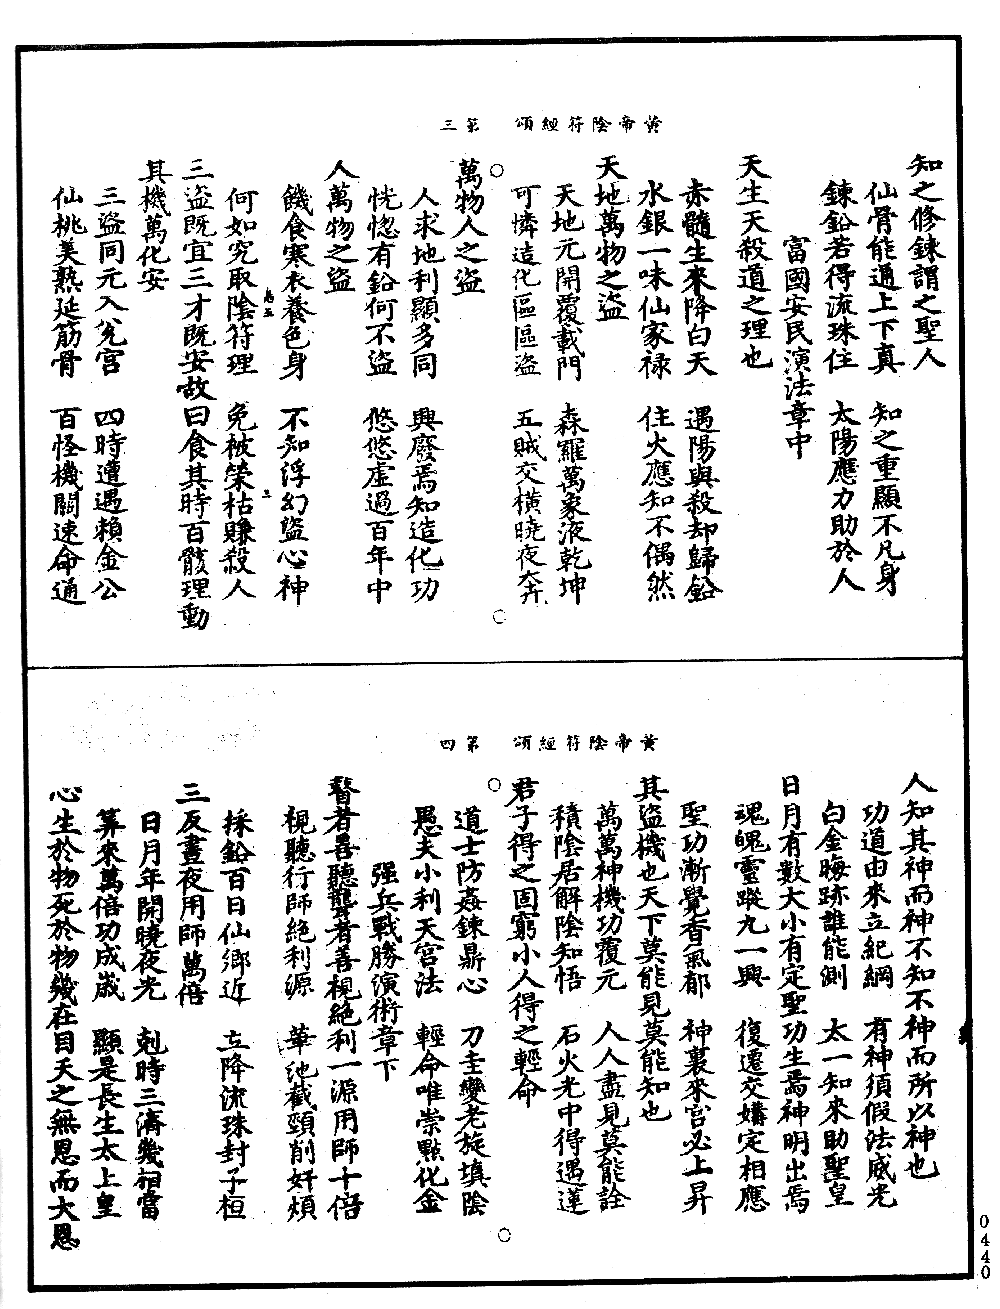 黃帝陰符經頌　第三
知之修鍊謂之聖人
仙骨能通上下真　知之重顯不凡身
鍊鉛若得流珠住　太陽應力助於人
富國安民演法章中
天生天殺道之理也
赤髓生來降白天　遇陽與殺却歸鉛
水銀一味仙家祿　住火應知不偶然
天地萬物之盜
天地元開覆載門　森羅萬象液乾坤
可憐造化區區盜　五賊交橫曉夜奔
萬物人之盜
人求地利顯多同　興廢焉知造化功
恍惚有鉛何不盜　悠悠虛過百年中
人萬物之盜
饑食寒衣養色身　不知浮幻盜心神
何如究取陰符理　免被榮枯賺殺人
三盜既宜三才既安故曰食其時百骸理動
其機萬化安
三盜同元入兊宮　四時遭遇賴金公
仙桃美熟延筋骨　百怪機關速命通
黃帝陰符經頌　第四
人知其神而神不知不神而所以神也
功道由來立紀綱　有神須假法威光
白金晦跡誰能測　太一知來助聖皇
日月有數大小有定聖功生焉神明出焉
魂魄靈蹤九一興　復遷交媾定相應
聖功漸覺香氣郁　神裏來宮必上昇
其盜機也天下莫能見莫能知也
萬萬神機功覆元　人人盡見莫能詮
積陰居解陰知悟　石火光中得遇蓮
君子得之固窮小人得之輕命
道士防姦鍊鼎心　刀圭變老旋填陰
愚夫小利天宮法　輕命唯崇點化金
强兵戰勝演術章下
瞽者善聽聾者善視絕利一源用師十倍
視聽行師絕利源　華池截頸削奸煩
採鉛百日仙鄉近　立降流珠封子桓
三反晝夜用師萬倍
日月年開曉夜光　剋時三濟幾相當
算來萬倍功成歲　顯是長生太上皇
心生於物死於物幾在目天之無恩而大恩
0440